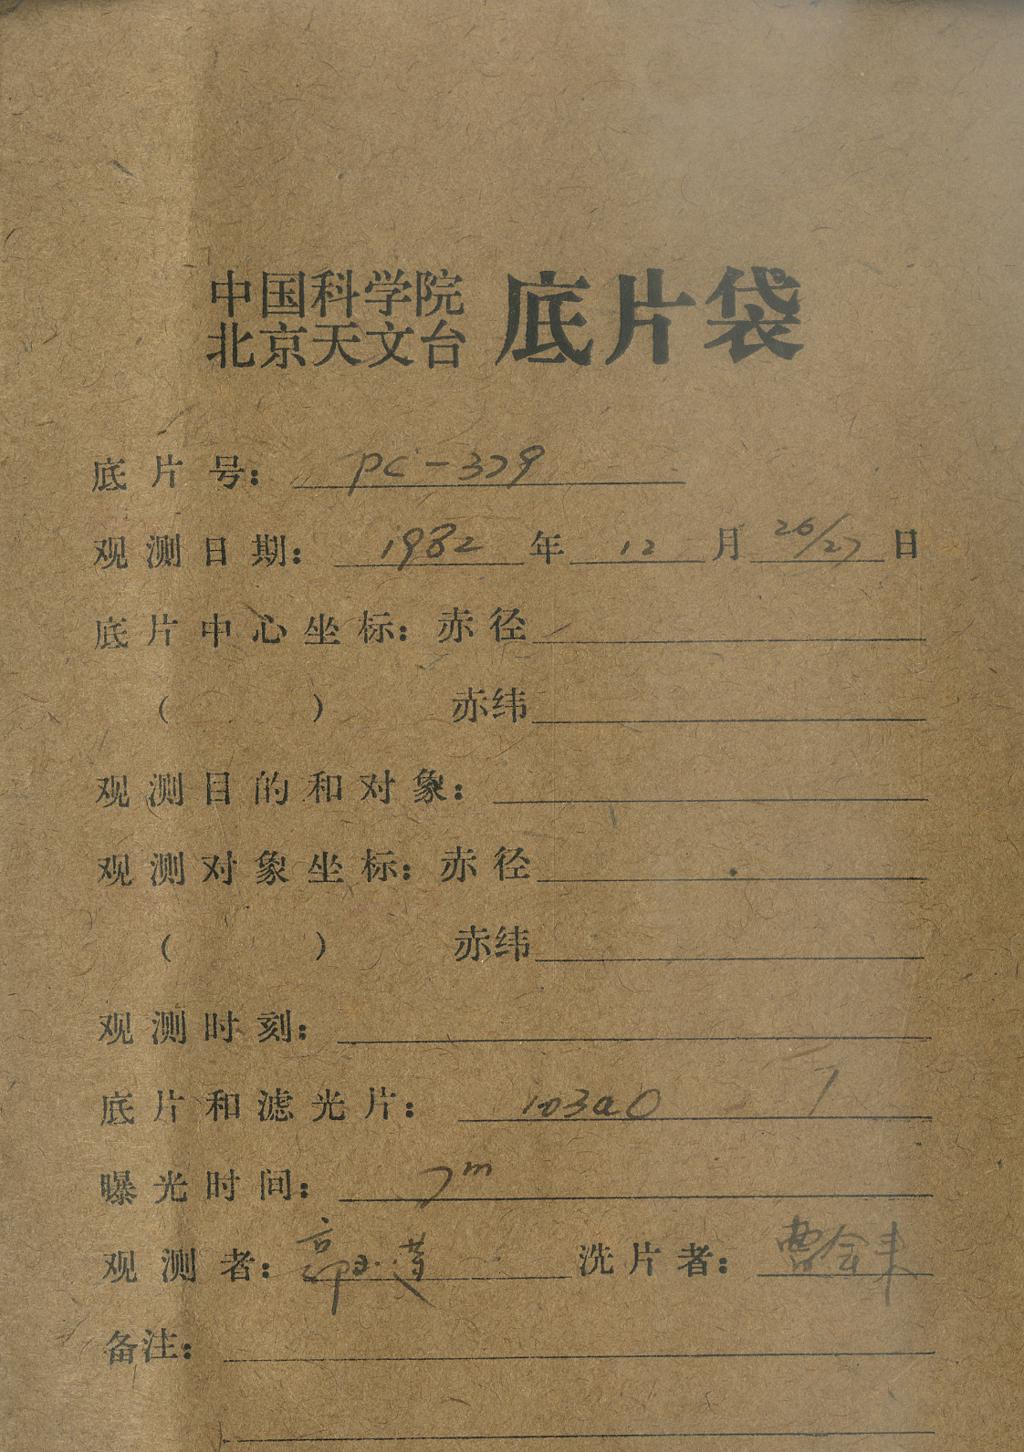 中国科学院
北京天文台 底片袋
底片号: PC-379
观测日期: 1982 年 12 月 26/27 日
底片中心坐标: 赤径
( ) 赤纬
观测目的和对象:
观测对象坐标: 赤径
( ) 赤纬
观测时刻:
底片和滤光片: 103aO
曝光时间: 7m
观测者: 郭 洗片者: 曹
备注: